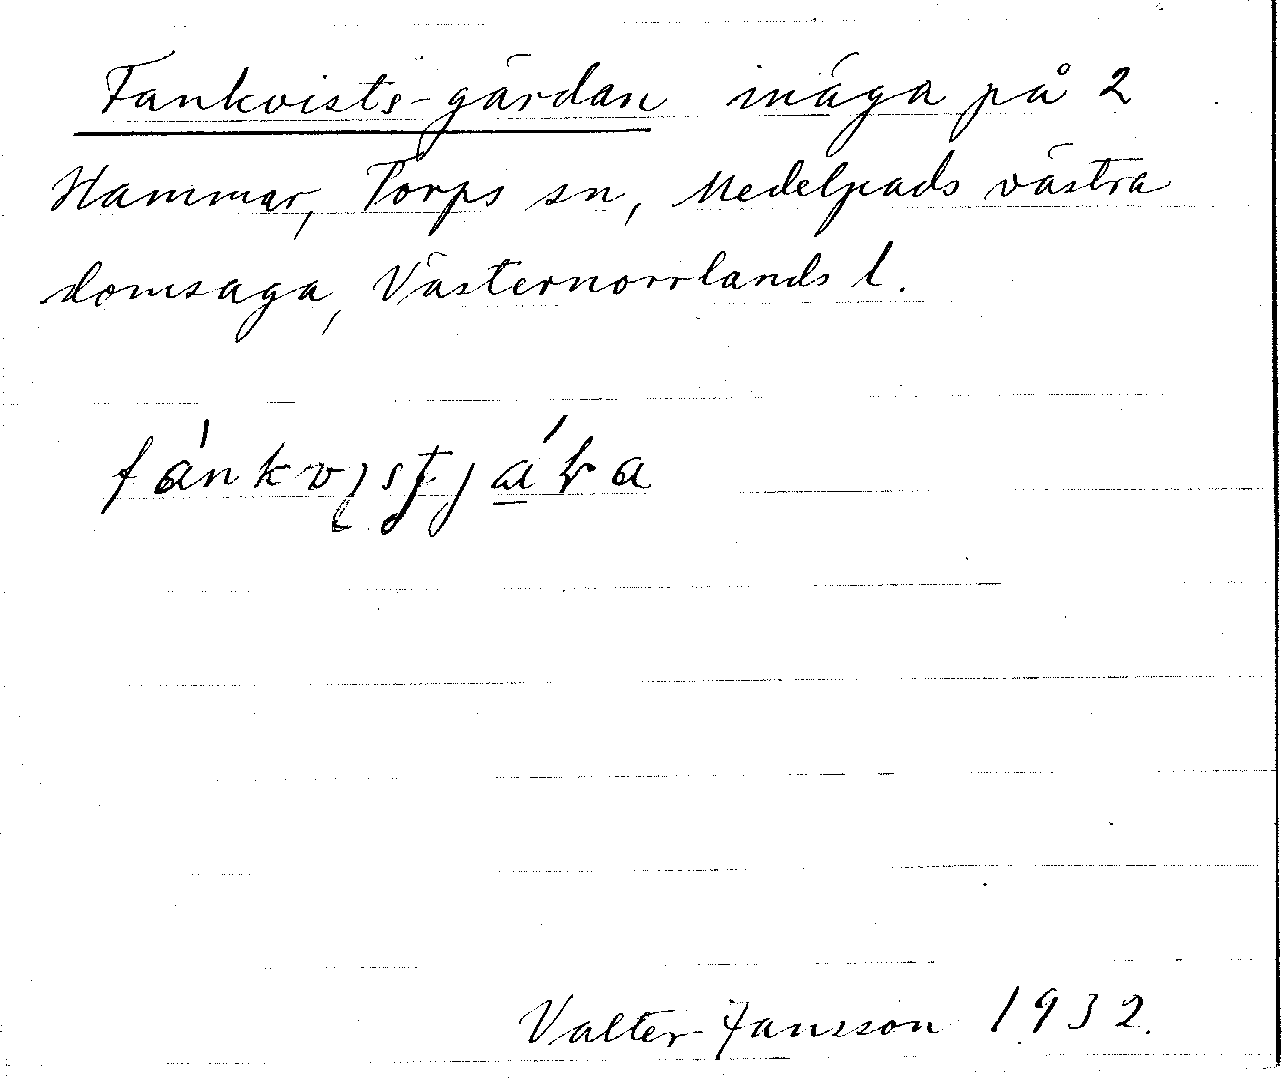 Fankvists-gärdan inäga på 2
Hammar, Torps sn, Medelpads västra
domsaga, Västernorrlands l.
Valter Jansson 1932.